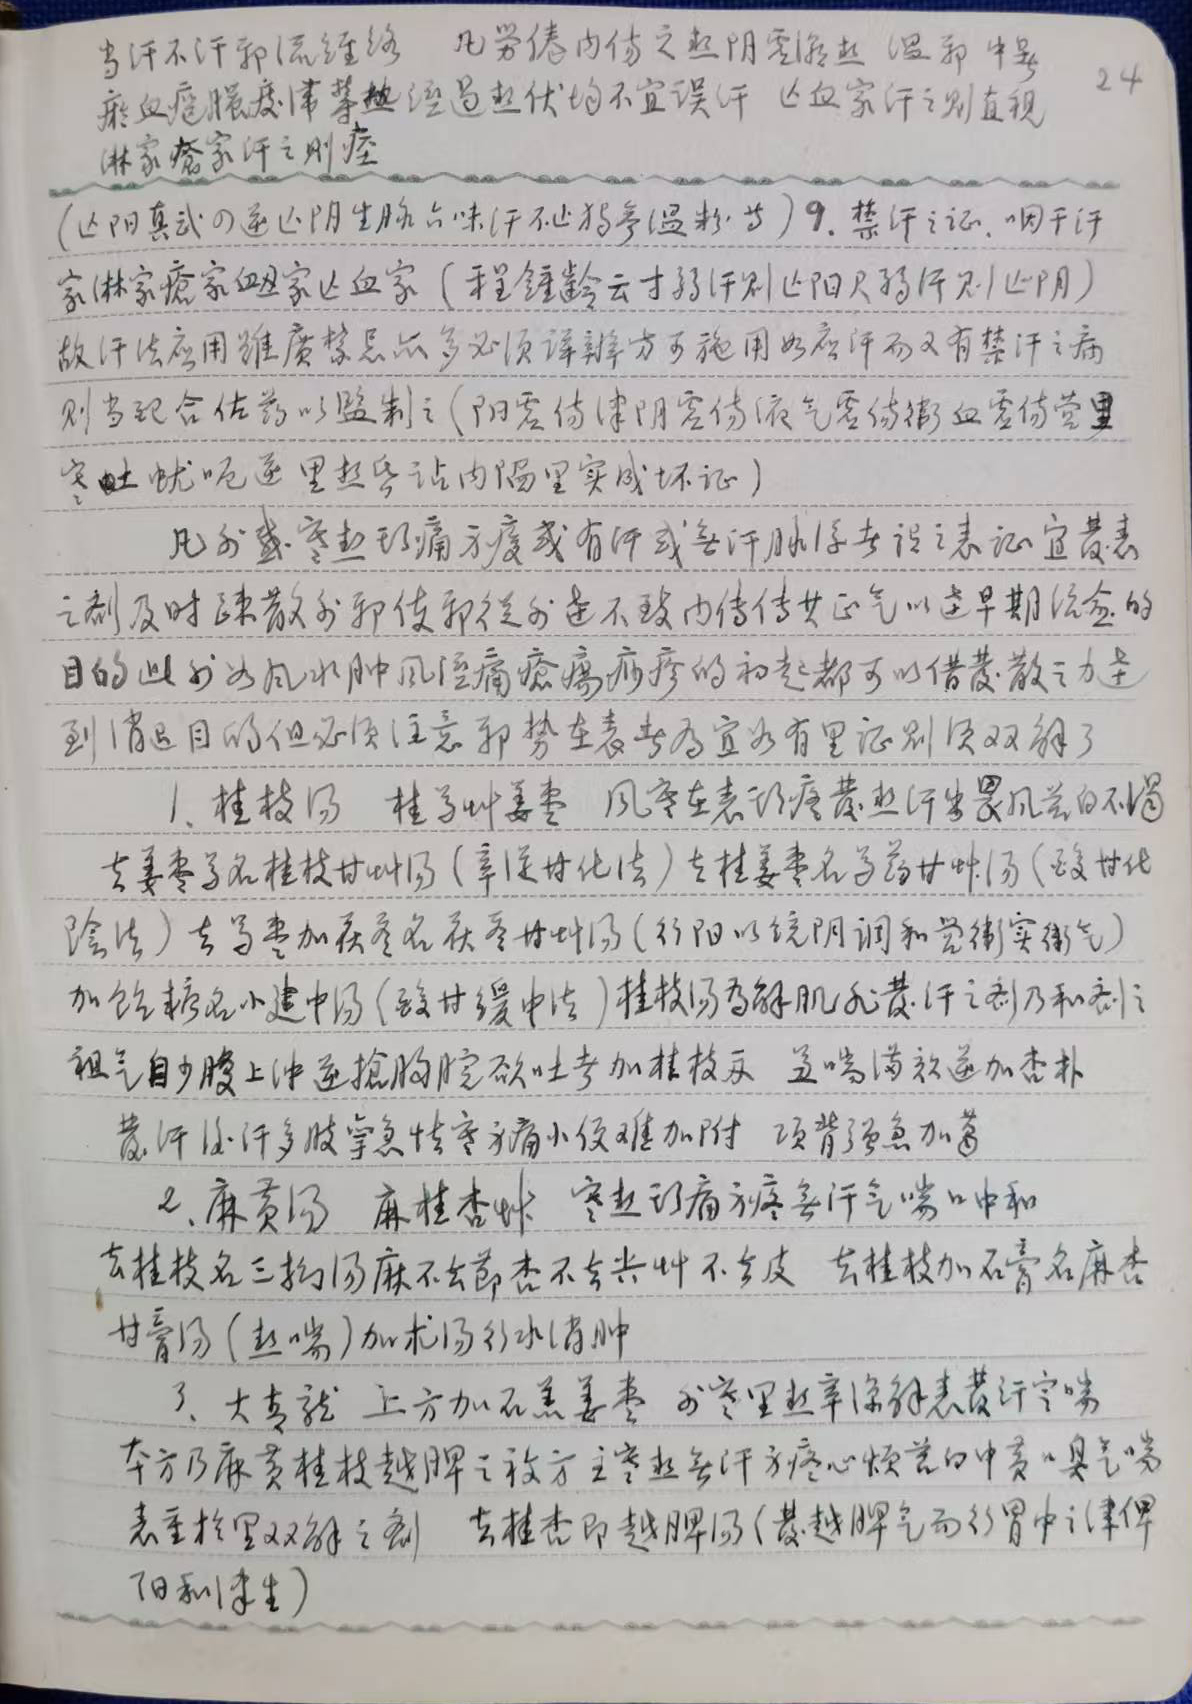 当汗不汗邪流经络 凡劳倦内伤之热阴虚潮热 温邪中暑
瘀血疮脓 湿过热伏均不宜误汗 亡血家汗之则直视
淋家疮家汗之则痉
24
(亡阳真武四逆亡阴生脉六味汗不止独参温粉等)9.禁汗之证.咽干汗
家淋家疮家衄家亡血家(程锺龄云寸弱汗则亡阳尺弱汗则亡阴)
故汗法应用虽广禁忌亦多必须详辨方可施用如应汗而又有禁汗之病
则当配合佐药以监制之(阳虚伤津阴虚伤液气虚伤卫血虚伤营里
寒吐蚘呃逆里热昏谵内陷里实成坏证)
凡外感寒热头痛身疼或有汗或无汗脉浮者谓之表证宜发表
之剂及时疏散外邪使邪从外达不致内传 其正气以达早期治愈的
目的此外如风水肿风湿痛疮疡痧疹的初起都可以借发散之力达
到消退目的但必须注意邪势在表者为宜如有里证则须双解了
1、桂枝汤 桂芍艸姜枣 风寒在表头疼发热汗出畏风苔白不渴
去姜枣芍名桂枝甘艸汤(辛从甘化法)去桂姜枣名芍药甘艸汤(酸甘化
阴法)去芍枣加茯苓名茯苓甘艸汤(行阳以统阴调和营卫实卫气)
加饴糖名小建中汤(酸甘缓中法)桂枝汤为解肌 发汗之剂乃和剂之
祖气自少腹上冲逆抢胸脘欲吐者加桂枝 喘满欬逆加杏朴
发汗后汗多肢挛急怯寒身痛小便难加附 项背强急加葛
2、麻黄汤 麻桂杏艸 寒热头痛身疼无汗气喘口中和
去桂枝名三拗汤麻不去节杏不去尖艸不去皮 去桂枝加石膏名麻杏
甘膏汤(热喘)加术汤行水消肿
3、大青龙 上方加石羔姜枣 外寒里热辛凉解表发汗定喘
本方乃麻黄桂枝越脾之复方主寒热无汗身疼心烦苔白中黄口臭气喘
表重于里双解之剂 去桂杏即越脾汤(发越脾气而行胃中之津俾
阳和津生)